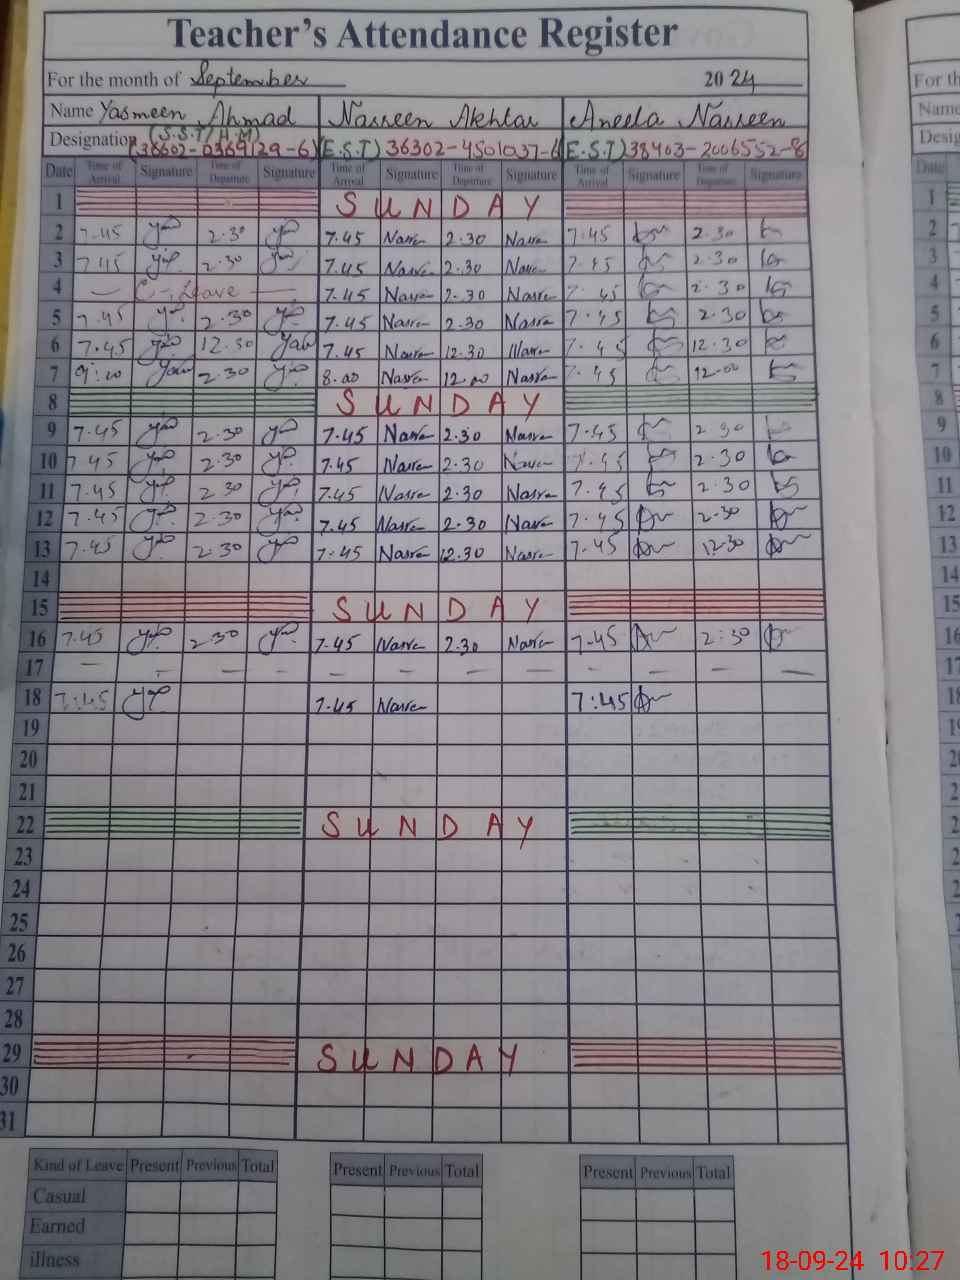 Teacher's Attendance Register
For the month of September 2024
Name Yasmeen Ahmad Nasreen Akhtar Aneela Nasreen
Designation (S.S.T/H.M) (38602-0369129-6) (E.S.T) 36302-4501037-6 (E.S.T) 38403-2006552-8
Date Time of Arrival Signature Time of Departure Signature Time of Arrival Signature Time of Departure Signature Time of Arrival Signature Time of Departure Signature
1 SUNDAY
2 7.45 2.30 7.45 Nasre 2.30 Nasre 7.45 2.30
3 7.45 2.30 7.45 Nasre 2.30 Nasre 7.45 2.30
4 — C-Leave — 7.45 Nasre 2.30 Nasre 7.45 2.30
5 7.45 2.30 7.45 Nasre 2.30 Nasre 7.45 2.30
6 7.45 12.30 7.45 Nasre 12.30 Nasre 7.45 12.30
7 9:00 2.30 8.00 Nasre 12.00 Nasre 7.45 12.00
8 SUNDAY
9 7.45 2.30 7.45 Nasre 2.30 Nasre 7.45 2 30
10 7 45 2.30 7.45 Nasre 2.30 Nasre 7.45 2.30
11 7.45 2 30 7.45 Nasre 2.30 Nasre 7.45 2.30
12 7.45 2.30 7.45 Nasre 2.30 Nasre 7.45 2.30
13 7.45 2.30 7:45 Nasre 12.30 Nasre 7.45 12.30
14
15 SUNDAY
16 7.45 2.30 7.45 Nasre 2.30 Nasre 7.45 2:30
17 — — — — — — — — — — — —
18 7:45 7.45 Nasre 7:45
19
20
21
22 SUNDAY
23
24
25
26
27
28
29 SUNDAY
30
31
Kind of Leave Present Previous Total Present Previous Total Present Previous Total
Casual
Earned
illness
18-09-24 10:27